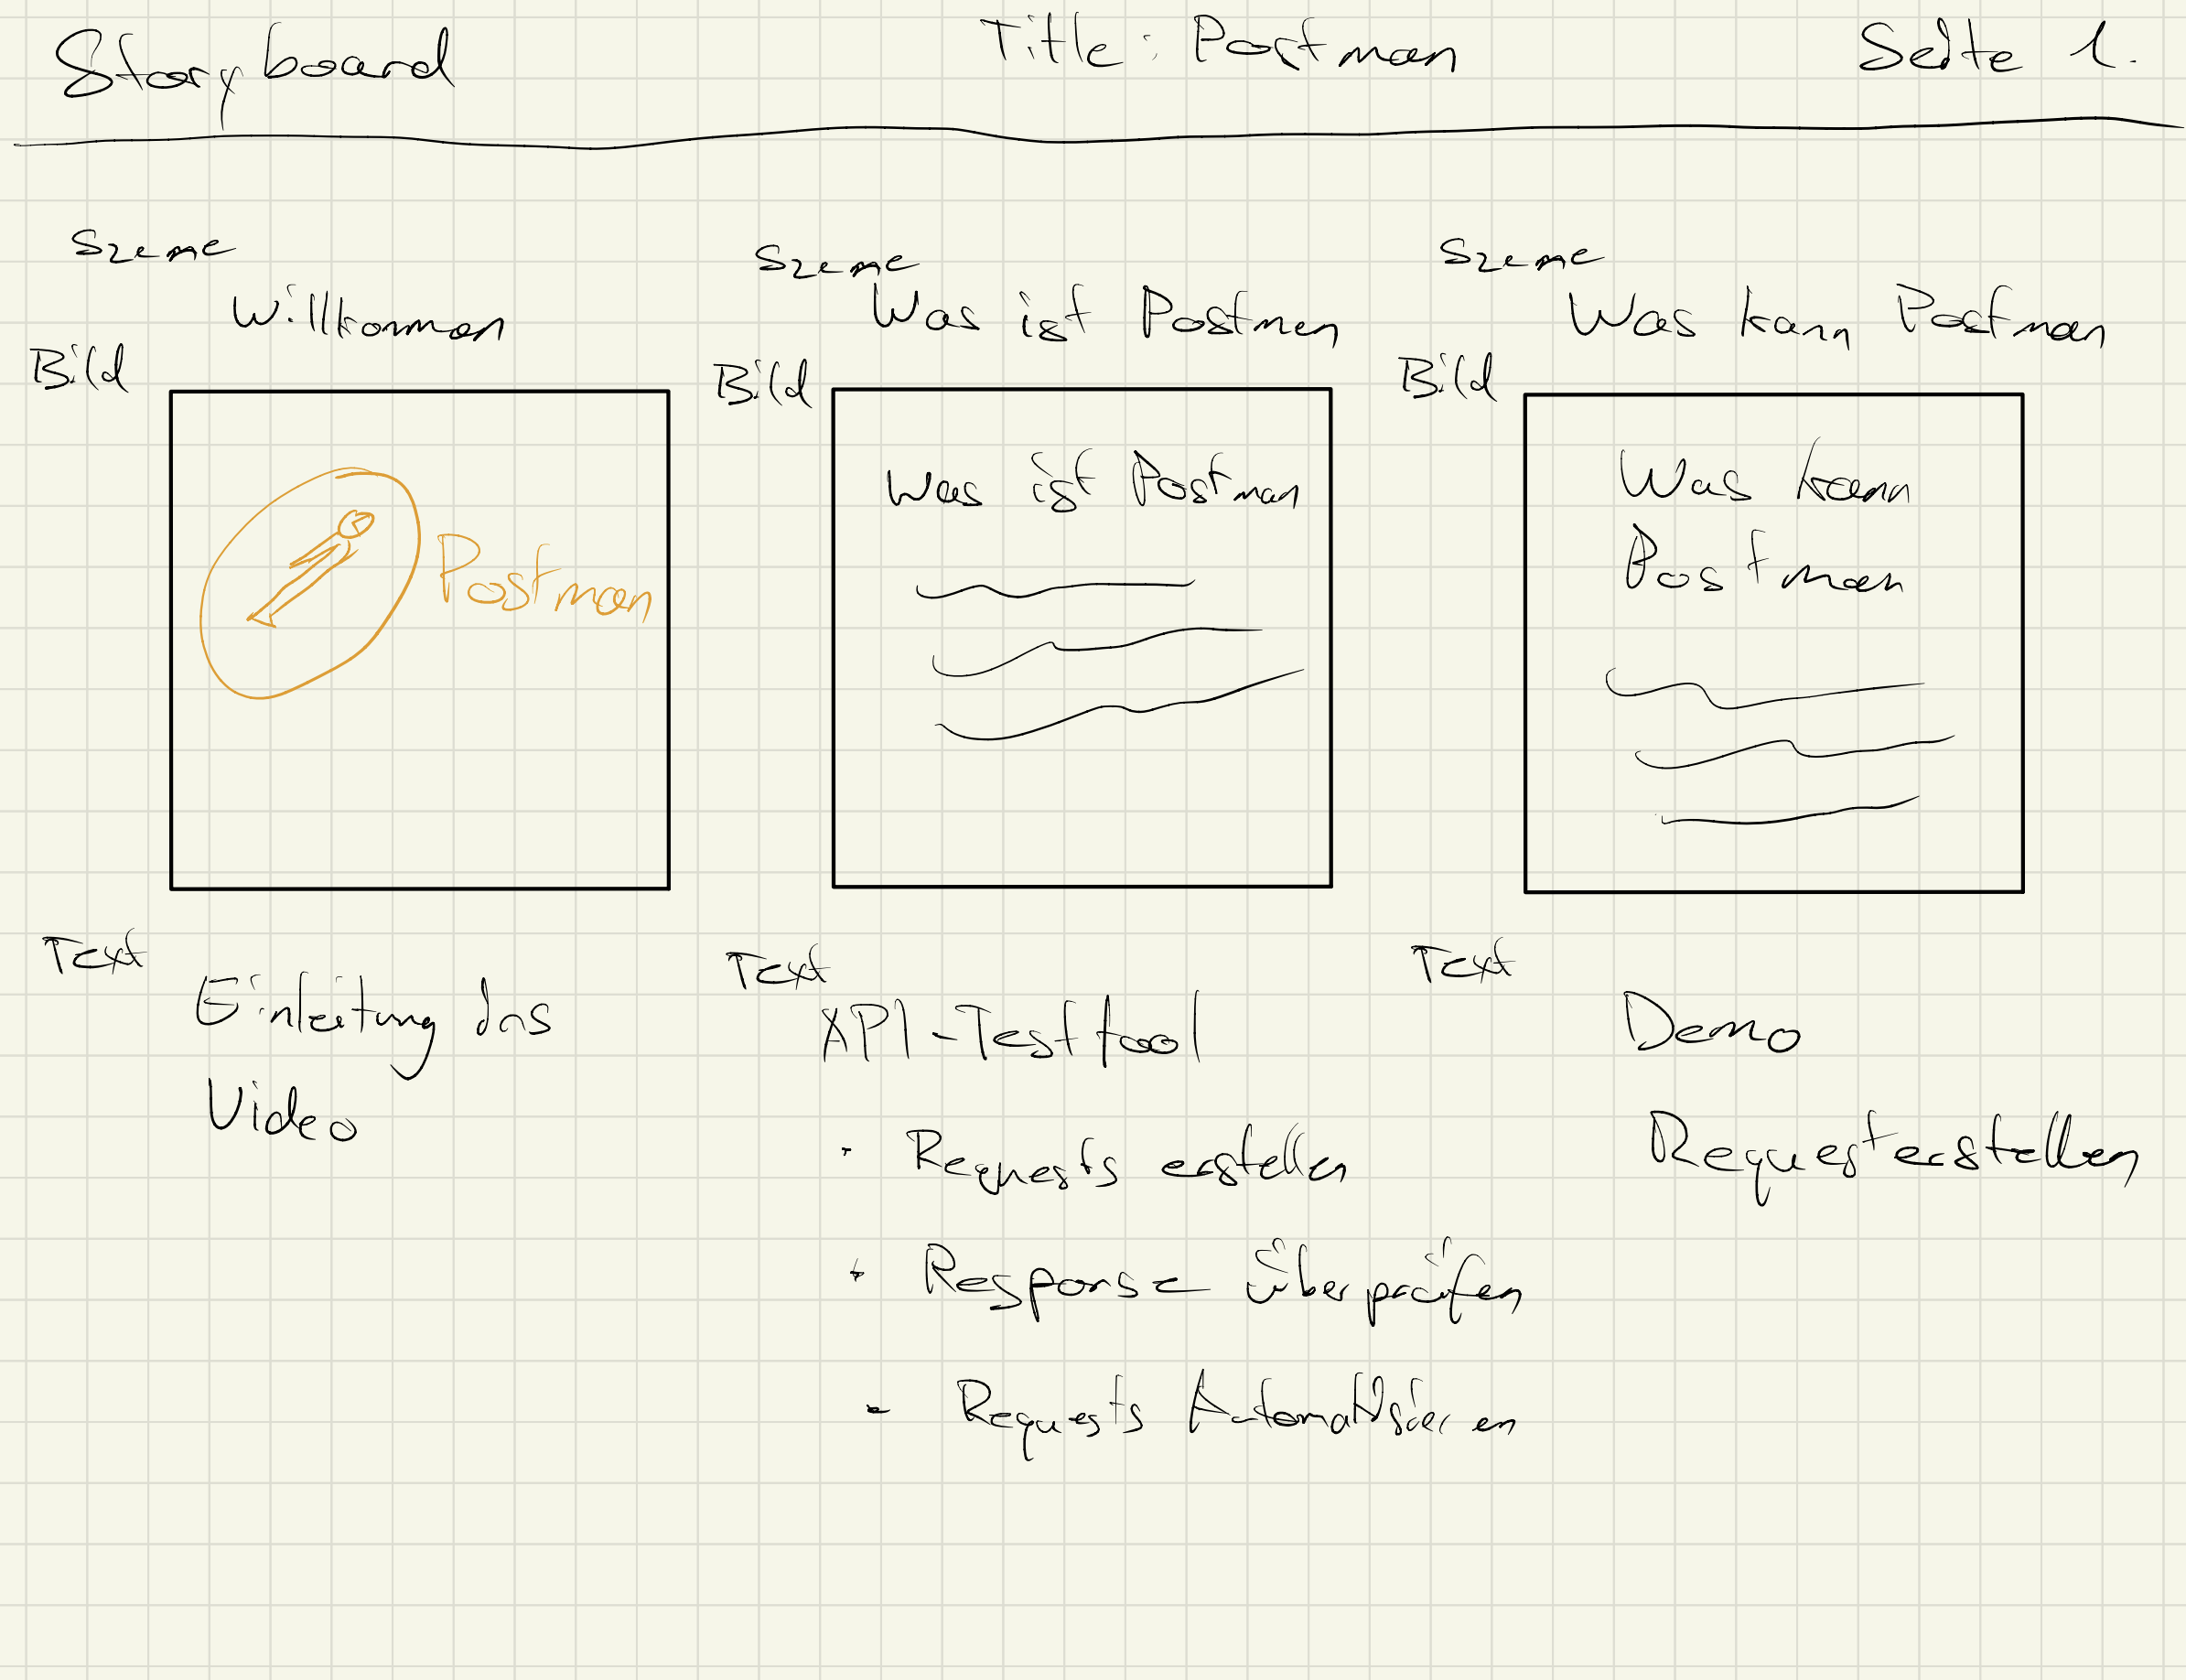 Storyboard
Title: Postman
Seite 1.
Szene
Willkommen
Bild
Postman
Text
Einleitung das
Video
Szene
Was ist Postman
Bild
Was ist Postman
Text
API-Testtool
· Requests erstellen
· Response überprüfen
- Requests Automatisieren
Szene
Was kann Postman
Bild
Was kann
Postman
Text
Demo
Request erstellen